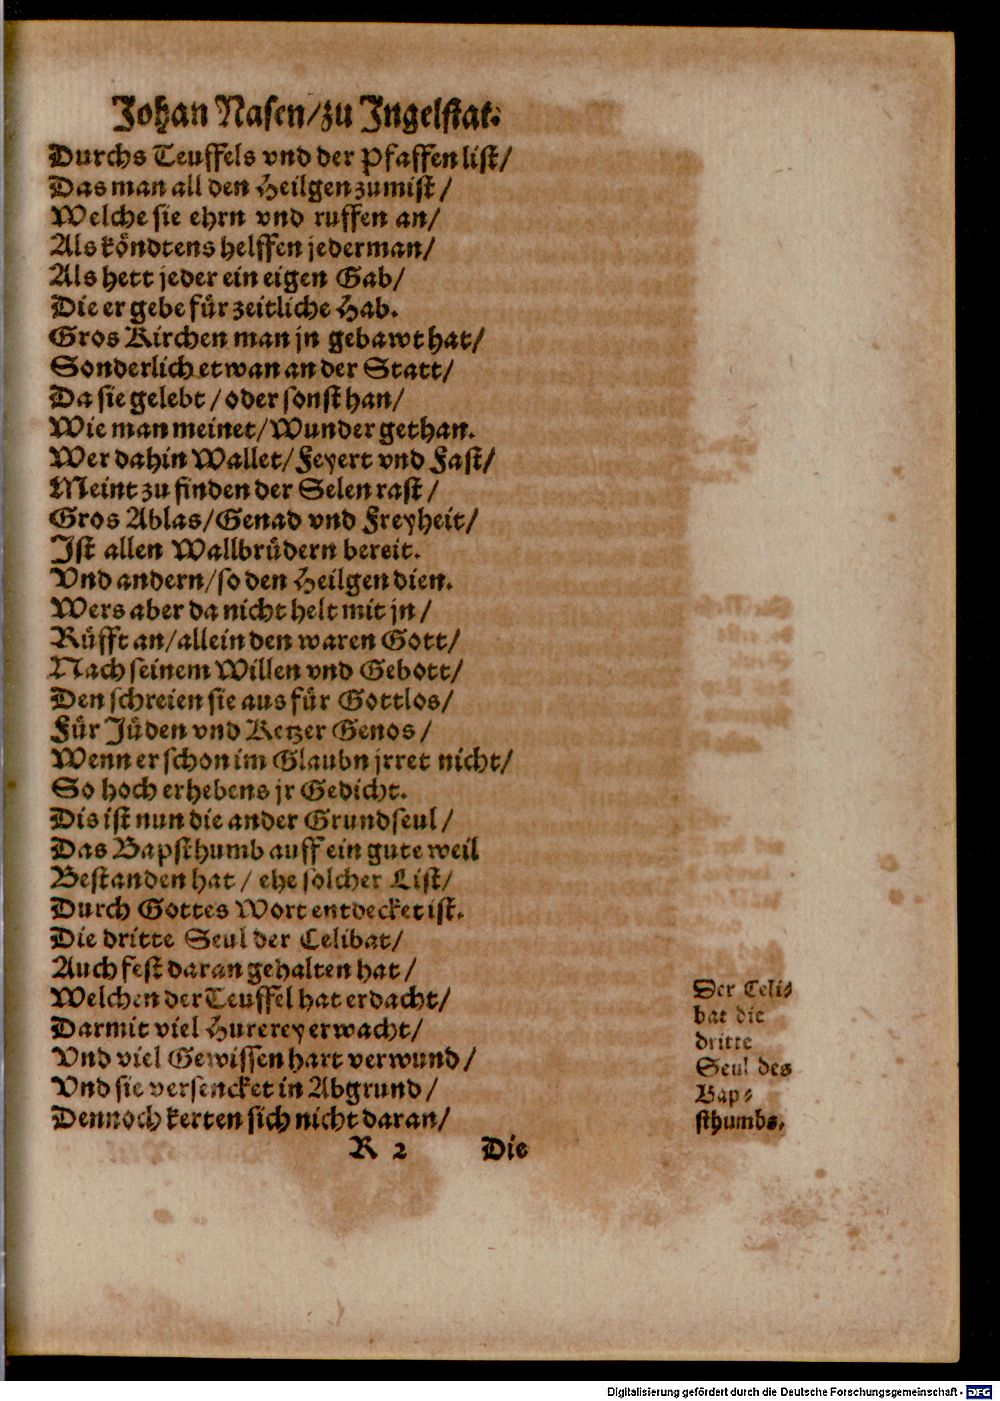 Johan Nasen/zu Ingelstat.
Durchs Teuffels vnd der Pfaffen list/
Das man all den Heilgen zumist/
Welche sie ehrn vnd ruffen an/
Als köndtens helffen jederman/
Als hett jeder ein eigen Gab/
Die er gebe für zeitliche Hab.
Gros Kirchen man jn gebawt hat/
Sonderlich etwan an der Statt/
Da sie gelebt/oder sonst han/
Wie man meinet/Wunder gethan.
Wer dahin Wallet/Feyert vnd Fast/
Meint zu finden der Selen rast/
Gros Ablas/Genad vnd Freyheit/
Ist allen Wallbrüdern bereit.
Vnd andern/so den Heilgen dien.
Wers aber da nicht helt mit jn/
Rüfft an/allein den waren Gott/
Nach seinem Willen vnd Gebott/
Den schreien sie aus für Gottlos/
Für Jüden vnd Ketzer Genos/
Wenn er schon im Glaubn jrret nicht/
So hoch erhebens jr Gedicht.
Dis ist nun die ander Grundseul/
Das Bapsthumb auff ein gute weil
Bestanden hat/ ehe solcher List/
Durch Gottes Wort entdecket ist.
Die dritte Seul der Celibat/
Auch fest daran gehalten hat/
Welchen der Teuffel hat erdacht/
Darmit viel Hurerey erwacht/
Vnd viel Gewissen hart verwund/
Vnd sie versencket in Abgrund/
Dennoch kerten sich nicht daran/
Der Celi-
bat die
dritte
Seul des
Bap-
sthumbs.
R 2 Die
Digitalisierung gefördert durch die Deutsche Forschungsgemeinschaft - DFG